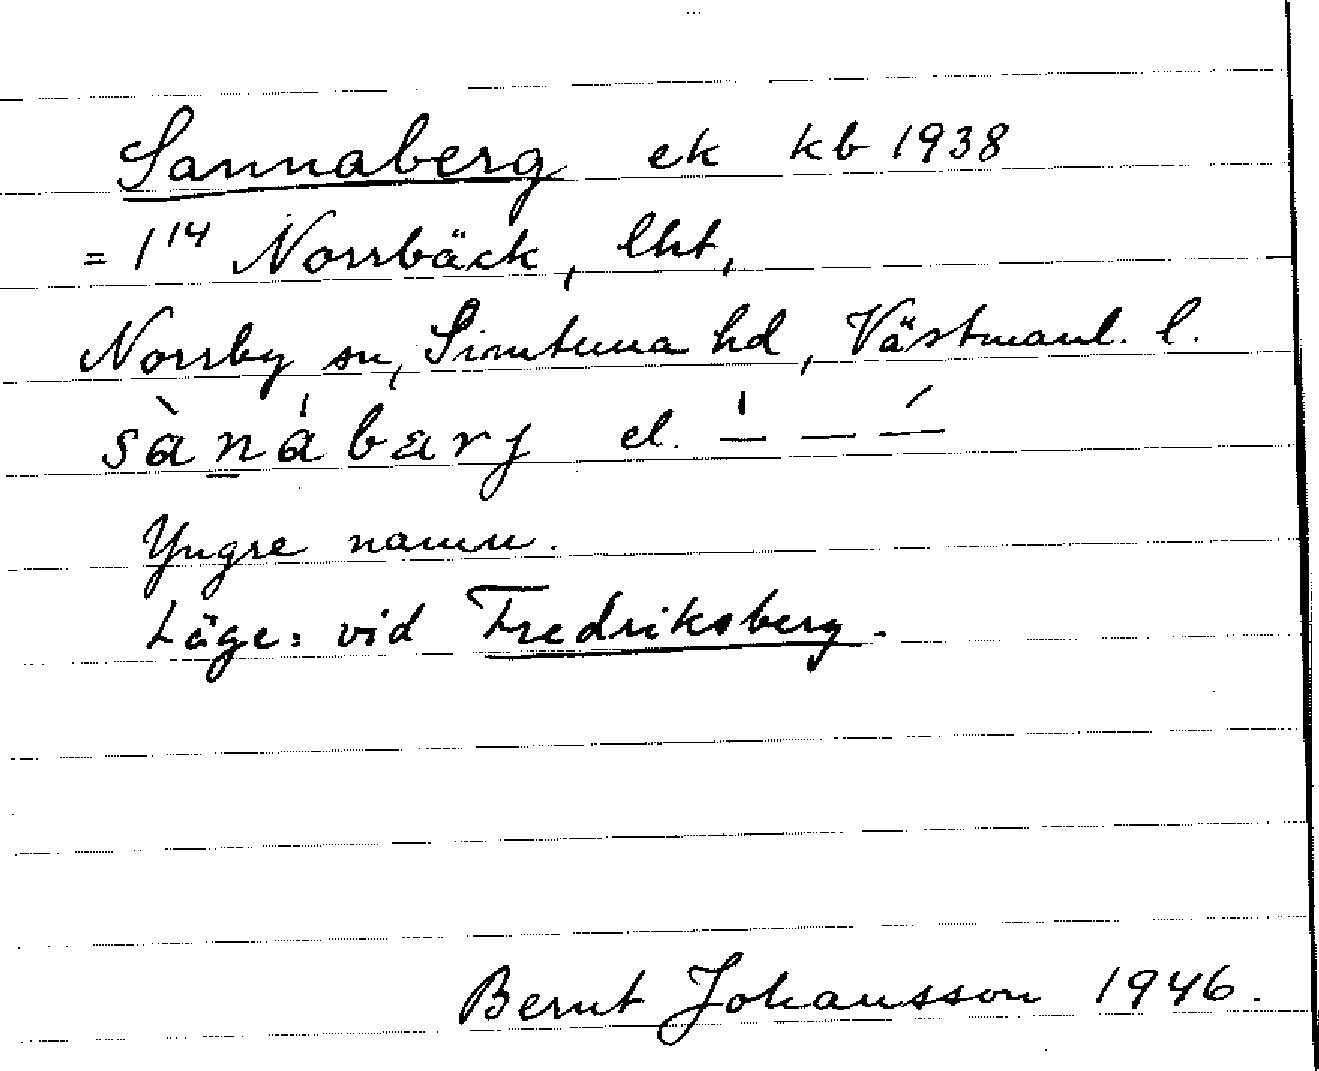 Sannaberg ek kb 1938
= 1¹⁴ Norrbäck, lht,
Norrby sn, Simtuna hd, Västmanl. l.
sànábærj el. –́ – –́
Yngre namn.
Läge: vid Fredriksberg.
Bernt Johansson 1946.